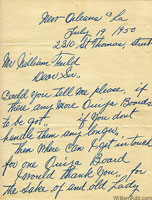 New Orleans 13 La
July 19, 1950
2310 St Thomas, Street
Mr William Fuld
Dear Sir,
Could You Tell Me please, if
there any More Ouija Boards
to be got, if You dont
handle them any longer,
then Where Can I get in touch
for one Ouija Board
I would Thank You, for
the sake of and old Lady
WilliamFuld.com